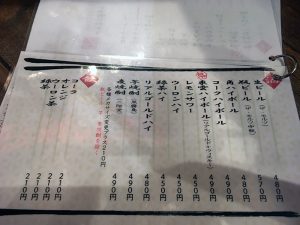 生ビール 480円
瓶ビール 570円
角ハイボール 480円
コークハイボール 490円
東雲ハイボール 490円
レモンサワー 450円
ウーロンハイ 450円
緑茶ハイ 450円
リアルゴールドハイ 480円
芋焼酎 490円
麦焼酎 490円
各種メガサイズ変更プラス210円
コーラ 210円
オレンジ 210円
ウーロン茶 210円
緑茶 210円